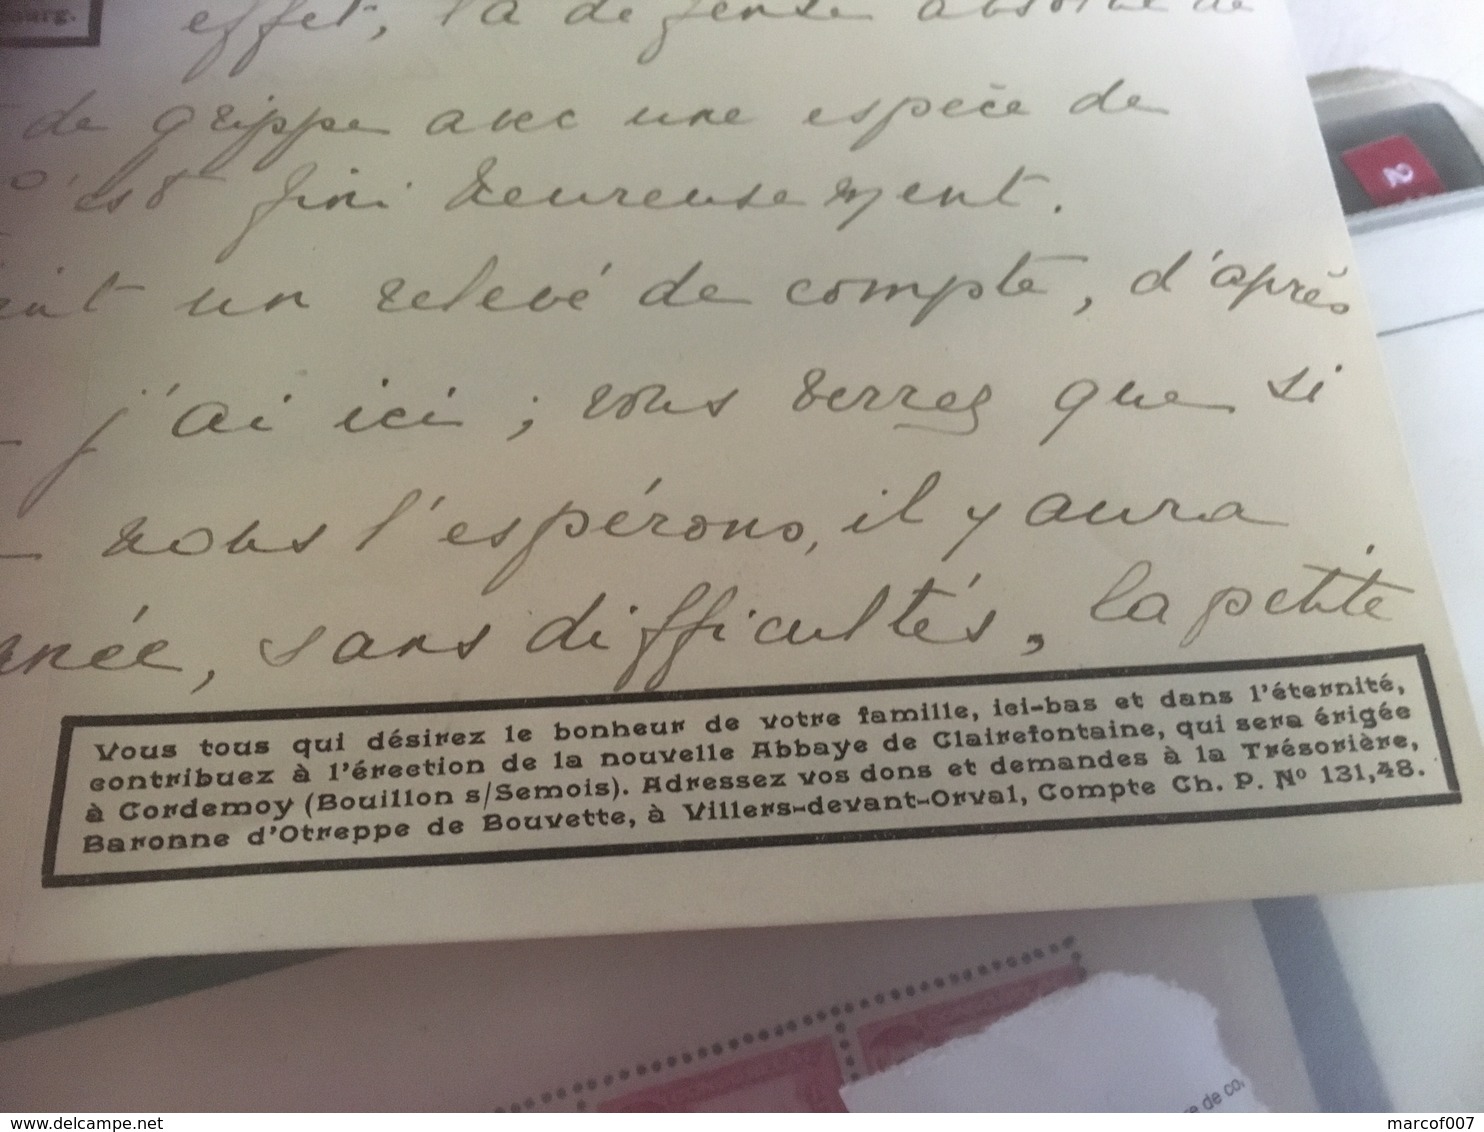 effet, la défense absolue de
de grippe avec une espèce de
c'est fini heureusement.
un relevé de compte, d'après
j'ai ici ; vous verrez que si
nous l'espérons, il y aura
née, sans difficultés, la petite
Vous tous qui désirez le bonheur de votre famille, ici-bas et dans l'éternité,
contribuez à l'érection de la nouvelle Abbaye de Clairefontaine, qui sera érigée
à Cordemoy (Bouillon s/Semois). Adressez vos dons et demandes à la Trésorière,
Baronne d'Otreppe de Bouvette, à Villers-devant-Orval, Compte Ch. P. N° 131,48.
2
de co
www.delcampe.net
marcof007